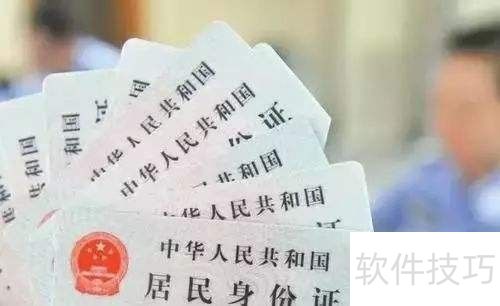 中华人民共和国
中华人民共和国
中华人民共和国
中华人民共和国
居民身份证
软件技巧